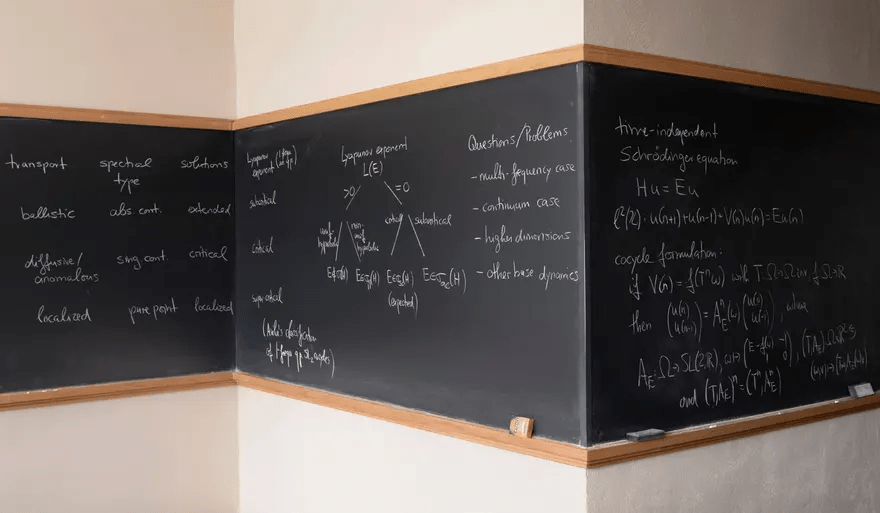 transport spectral solutions
type
ballistic abs. cont. extended
diffusive/ sing cont. critical
anomalous
localized pure point localized
Lyapunov
exponent
subcritical
critical
supercritical
(Avila's classification
of 1-frequ qp SL2 cocycles)
Lyapunov exponent
L(E)
>0 =0
unif. non- critical subcritical
hyperbolic unif.
hyperbolic
E∉σ(H) E∈σ (H) E∈σ (H) E∈σac(H)
(expected)
Questions/Problems
- multi-frequency case
- continuum case
- higher dimensions
- other base dynamics
time-independent
Schrödinger equation
Hu = Eu
ℓ²(ℤ): u(n+1)+u(n-1)+V(n)u(n)=Eu(n)
cocycle formulation:
if V(n) = f(Tⁿω) with T:Ω→Ω inv, f:Ω→ℝ
then (u(n) u(n-1)) = A_Eⁿ(ω) (u(0) u(-1)), where
A_E: Ω→SL(2,ℝ), ω↦(E-f(ω) -1 1 0), (T,A_E):Ω×ℝ²↺
and (T,A_E)ⁿ=(Tⁿ,A_Eⁿ)